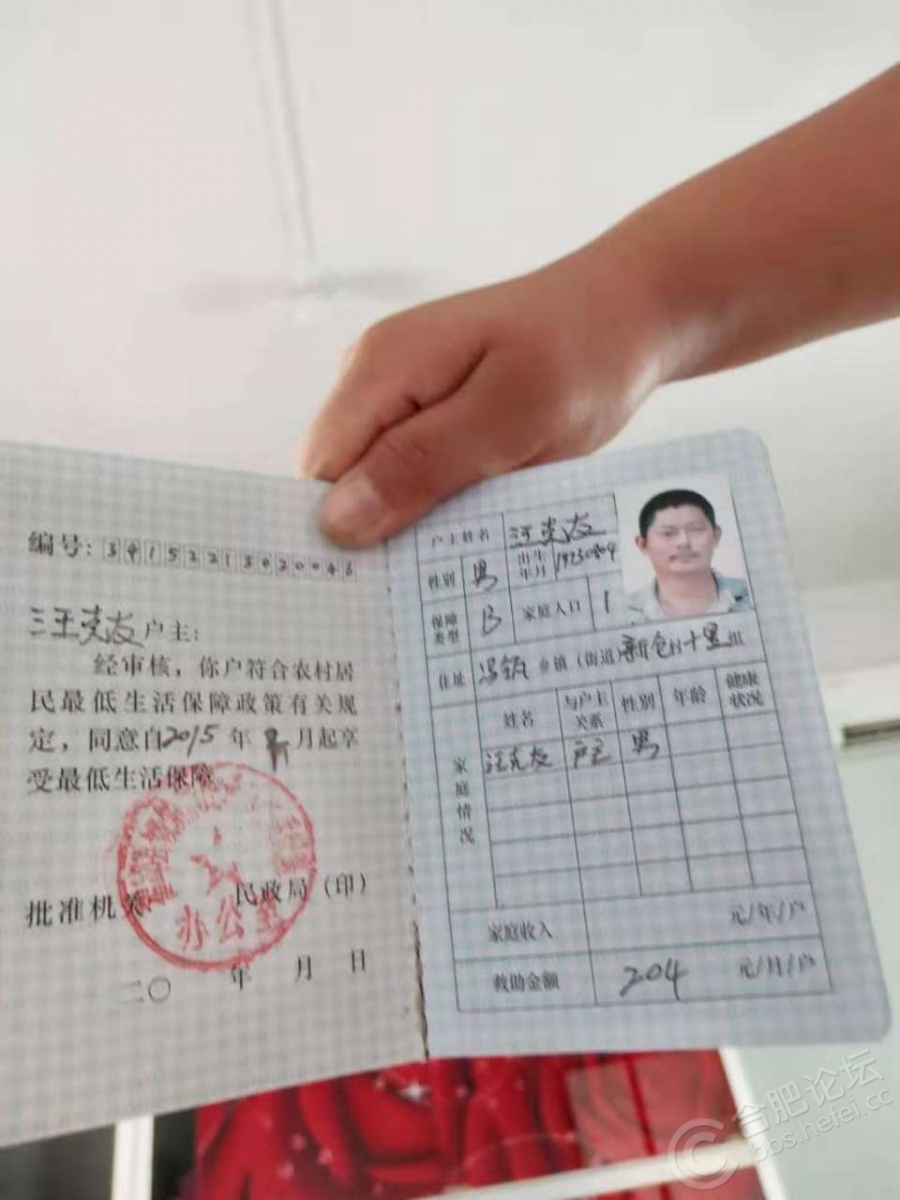 编号：34152213020046
汪克友户主：
经审核，你户符合农村居
民最低生活保障政策有关规
定，同意自2015年 月起享
受最低生活保障。
批准机关 民政局（印）
办公室
二〇 年 月 日
户主姓名 汪克友
性别 男 出生年月
保障类型 B 家庭人口 1
住址 冯瓴 乡镇（街道）新仓村十里组
家庭情况
姓名 与户主关系 性别 年龄 健康状况
汪克友 户主 男
家庭收入 元/年/户
救助金额 204 元/月/户
合肥论坛
bbs.hefei.cc